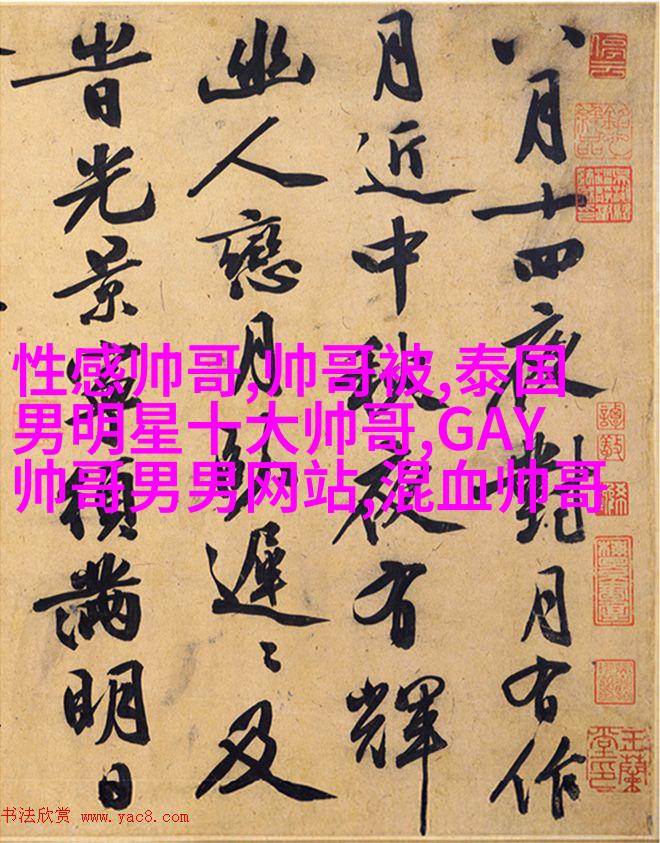 八月十四夜對月有作
月近中秋夜有輝
幽人戀月遲〻及
旹光景寧須滿明日
性感帅哥,帅哥被,泰国
男明星十大帅哥,GAY
帅哥男男网站,混血帅哥
停云
玉蘭堂印
书法欣赏 www.yac8.com